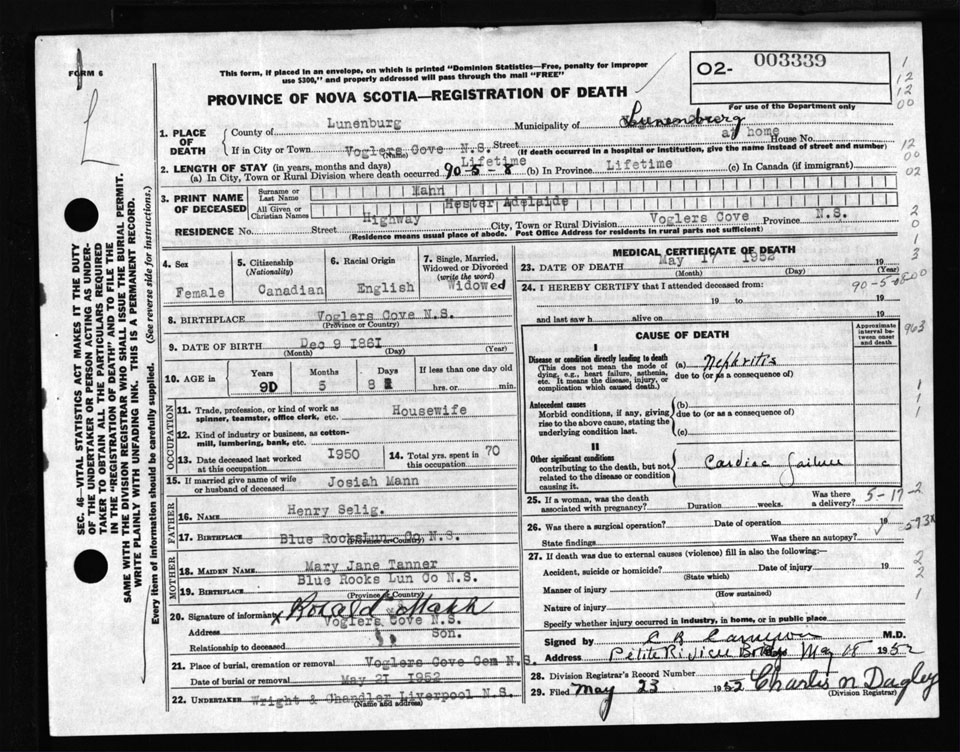 FORM 6
This form, if placed in an envelope, on which is printed "Dominion Statistics—Free, penalty for improper
use $300," and properly addressed will pass through the mail "FREE"
O2- 003339
For use of the Department only
PROVINCE OF NOVA SCOTIA—REGISTRATION OF DEATH
1. PLACE OF DEATH
County of Lunenburg Municipality of Lunenburg
If in City or Town Voglers Cove N.S. Street at home House No.
(Name) (If death occurred in a hospital or institution, give the name instead of street and number)
2. LENGTH OF STAY (in years, months and days)
(a) In City, Town or Rural Division where death occurred Lifetime 90-5-8 (b) In Province Lifetime (c) In Canada (if immigrant)
3. PRINT NAME OF DECEASED
Surname or Last Name Mann
All Given or Christian Names Hester Adelaide
RESIDENCE No. Street Highway City, Town or Rural Division Voglers Cove Province N.S.
(Residence means usual place of abode. Post Office Address for residents in rural parts not sufficient)
4. Sex Female
5. Citizenship (Nationality) Canadian
6. Racial Origin English
7. Single, Married, Widowed or Divorced (write the word) Widowed
8. BIRTHPLACE Voglers Cove N.S.
(Province or Country)
9. DATE OF BIRTH Dec 9 1861
(Month) (Day) (Year)
10. AGE in Years 90 Months 5 Days 8 If less than one day old hrs. or min.
OCCUPATION
11. Trade, profession, or kind of work as spinner, teamster, office clerk, etc. Housewife
12. Kind of industry or business, as cotton-mill, lumbering, bank, etc.
13. Date deceased last worked at this occupation 1950
14. Total yrs. spent in this occupation 70
15. If married give name of wife or husband of deceased Josiah Mann
FATHER
16. Name Henry Selig.
17. Birthplace Blue Rocks Lun. Co N.S.
(Province or Country)
MOTHER
18. Maiden Name Mary Jane Tanner
19. Birthplace Blue Rocks Lun Co N.S.
(Province or Country)
20. Signature of informant x Ronald Mann
Address Voglers Cove N.S.
Relationship to deceased Son.
21. Place of burial, cremation or removal Voglers Cove Cem N.S.
Date of burial or removal May 21 1952
22. Undertaker Wright & Chandler Liverpool N.S.
(Name and address)
MEDICAL CERTIFICATE OF DEATH
23. DATE OF DEATH May 17 1952
(Month) (Day) (Year)
24. I HEREBY CERTIFY that I attended deceased from:
19 to 19
and last saw h alive on 19
CAUSE OF DEATH
Approximate interval between onset and death
I
Disease or condition directly leading to death
(This does not mean the mode of dying, e.g., heart failure, asthenia, etc. It means the disease, injury, or complication which caused death.)
(a) Nephritis
due to (or as a consequence of)
Antecedent causes
Morbid conditions, if any, giving rise to the above cause, stating the underlying condition last.
(b)
due to (or as a consequence of)
(c)
II
Other significant conditions
contributing to the death, but not related to the disease or condition causing it.
Cardiac failure
25. If a woman, was the death associated with pregnancy? Duration weeks. Was there a delivery?
5-17-2
26. Was there a surgical operation? Date of operation 19
State findings Was there an autopsy?
27. If death was due to external causes (violence) fill in also the following:
Accident, suicide or homicide? Date of injury 19
(State which)
Manner of injury
(How sustained)
Nature of injury
Specify whether injury occurred in industry, in home, or in public place
Signed by C B Cameron M.D.
Address Petite Riviere Bridge May 18 1952
28. Division Registrar's Record Number
29. Filed May 23 1952 Charles N Dagley
(Division Registrar)
SEC. 46—VITAL STATISTICS ACT MAKES IT THE DUTY
OF THE UNDERTAKER OR PERSON ACTING AS UNDER-
TAKER TO OBTAIN ALL THE PARTICULARS REQUIRED
IN THE "REGISTRATION OF DEATH" AND TO FILE THE
SAME WITH THE DIVISION REGISTRAR WHO SHALL ISSUE THE BURIAL PERMIT.
WRITE PLAINLY WITH UNFADING INK. THIS IS A PERMANENT RECORD.
Every item of information should be carefully supplied. (See reverse side for instructions.)